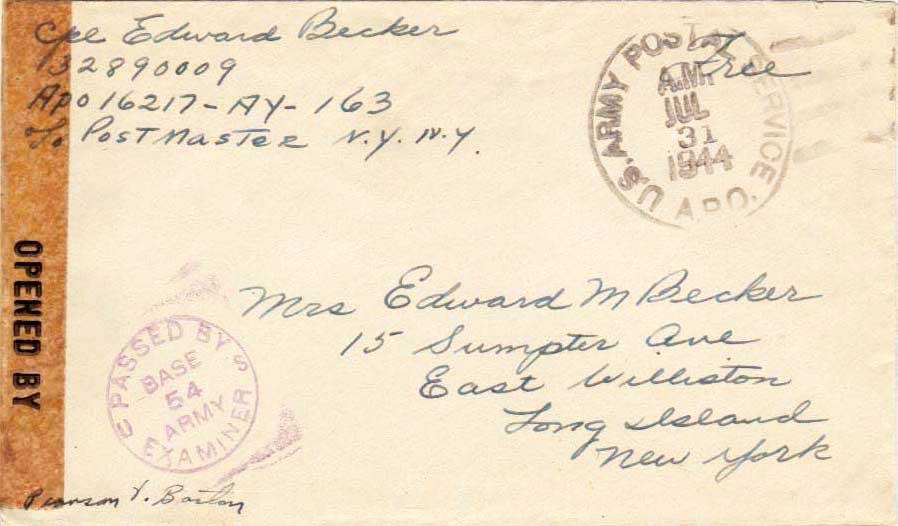 Cpl Edward Becker
32890009
APO 16217-AY-163
℅ PostMaster N.Y. N.Y.
Free
U.S. ARMY POSTAL SERVICE A.P.O.
A.M.
JUL
31
1944
OPENED BY
Mrs Edward M Becker
15 Sumpter Ave
East Williston
Long Island
New York
PASSED BY
BASE
54
ARMY
EXAMINER